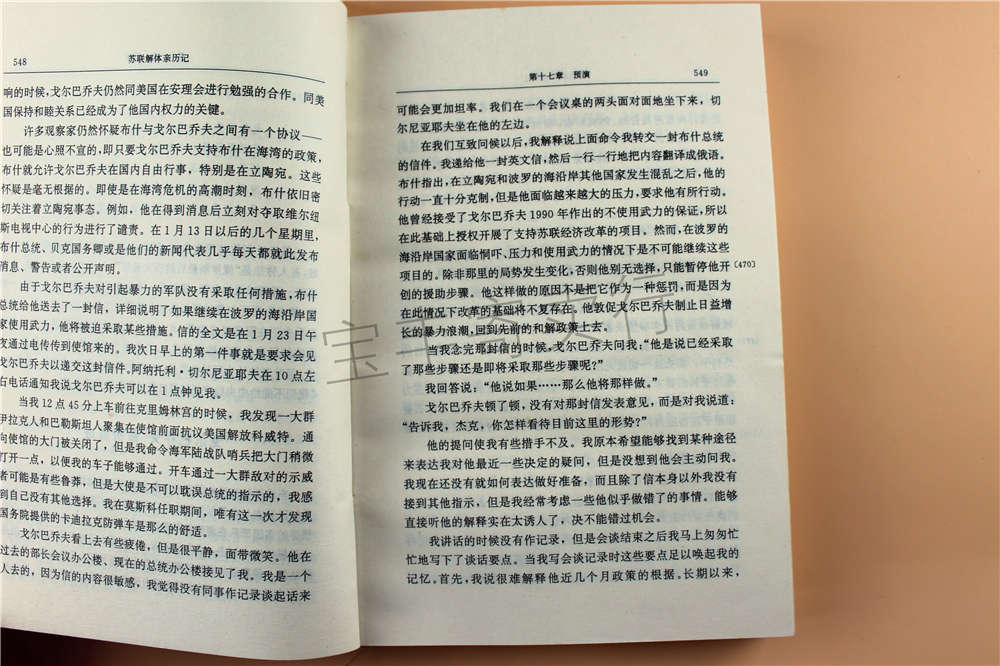 548 苏联解体亲历记
响的时候，戈尔巴乔夫仍然同美国在安理会进行勉强的合作。同美
国保持和睦关系已经成为了他国内权力的关键。
许多观察家仍然怀疑布什与戈尔巴乔夫之间有一个协议——
也可能是心照不宣的，即只要戈尔巴乔夫支持布什在海湾的政策，
布什就允许戈尔巴乔夫在国内自由行事，特别是在立陶宛。这些
怀疑是毫无根据的。即使是在海湾危机的高潮时刻，布什依旧密
切关注着立陶宛事态。例如，他在得到消息后立刻对夺取维尔纽
斯电视中心的行为进行了谴责。在1月13日以后的几个星期里，
布什总统、贝克国务卿或是他们的新闻代表几乎每天都就此发布
消息、警告或者公开声明。
由于戈尔巴乔夫对引起暴力的军队没有采取任何措施，布什
总统给他送去了一封信，详细说明了如果继续在波罗的海沿岸国
家使用武力，他将被迫采取某些措施。信的全文是在1月23日午
夜通过电传传到使馆来的。我次日早上的第一件事就是要求会见
戈尔巴乔夫以递交这封信件。阿纳托利·切尔尼亚耶夫在10点左
右电话通知我说戈尔巴乔夫可以在1点钟见我。
当我12点45分上车前往克里姆林宫的时候，我发现一大群
伊拉克人和巴勒斯坦人聚集在使馆前面抗议美国解放科威特。通
向使馆的大门被关闭了，但是我命令海军陆战队哨兵把大门稍微
打开一点，以便我的车子能够通过。开车通过一大群敌对的示威
者可能是有些鲁莽，但是大使是不可以耽误总统的指示的，我感
到自己没有其他选择。我在莫斯科任职期间，唯有这一次才发现
国务院提供的卡迪拉克防弹车是那么的舒适。
戈尔巴乔夫看上去有些疲倦，但是很平静，面带微笑。他在
过去的部长会议办公楼、现在的总统办公楼接见了我。我是一个
人去的，因为信的内容很敏感，我觉得没有同事作记录谈起话来
第十七章 预演 549
可能会更加坦率。我们在一个会议桌的两头面对面地坐下来，切
尔尼亚耶夫坐在他的左边。
在我们互致问候以后，我解释说上面命令我转交一封布什总统
的信件。我递给他一封英文信，然后一行一行地把内容翻译成俄语。
布什指出，在立陶宛和波罗的海沿岸其他国家发生混乱之后，他的
行动一直十分克制，但是他面临越来越大的压力，要求他有所行动。
他曾经接受了戈尔巴乔夫1990年作出的不使用武力的保证，所以
在此基础上授权开展了支持苏联经济改革的项目。然而，在波罗的
海沿岸国家面临恫吓、压力和使用武力的情况下是不可能继续这些
项目的。除非那里的局势发生变化，否则他别无选择，只能暂停他开 [470]
创的援助步骤。他这样做的原因不是把它作为一种惩罚，而是因为
在此情况下改革的基础将不复存在。他敦促戈尔巴乔夫制止日益增
长的暴力浪潮，回到先前的和解政策上去。
当我念完那封信的时候，戈尔巴乔夫问我：“他是说已经采取
了那些步骤还是即将采取那些步骤呢？”
我回答说：“他说如果……那么他将那样做。”
戈尔巴乔夫顿了顿，没有对那封信发表意见，而是对我说道：
“告诉我，杰克，你怎样看待目前这里的形势？”
他的提问使我有些措手不及。我原本希望能够找到某种途径
来表达我对他最近一些决定的疑问，但是没想到他会主动问我。
我现在还没有就如何表达做好准备，而且除了信本身以外我没有
接到其他指示，但是我经常考虑一些他似乎做错了的事情。能够
直接听他的解释实在太诱人了，决不能错过机会。
我讲话的时候没有作记录，但是会谈结束之后我马上匆匆忙
忙地写下了谈话要点。当我写会谈记录时这些要点足以唤起我的
记忆。首先，我说很难解释他近几个月政策的根据。长期以来，